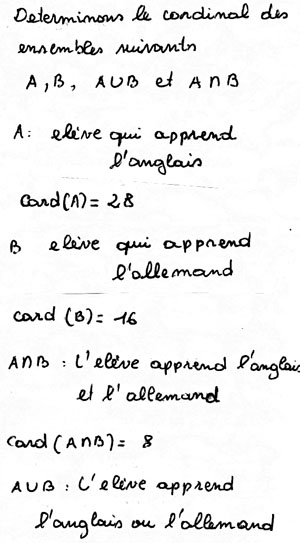 Determinons le cardinal des
ensembles suivants
A, B, A∪B et A∩B
A: elève qui apprend
l'anglais
Card(A) = 28
B elève qui apprend
l'allemand
card (B) = 16
A∩B : L'elève apprend l'anglais
et l'allemand
Card (A∩B) = 8
A∪B : L'elève apprend
l'anglais ou l'allemand